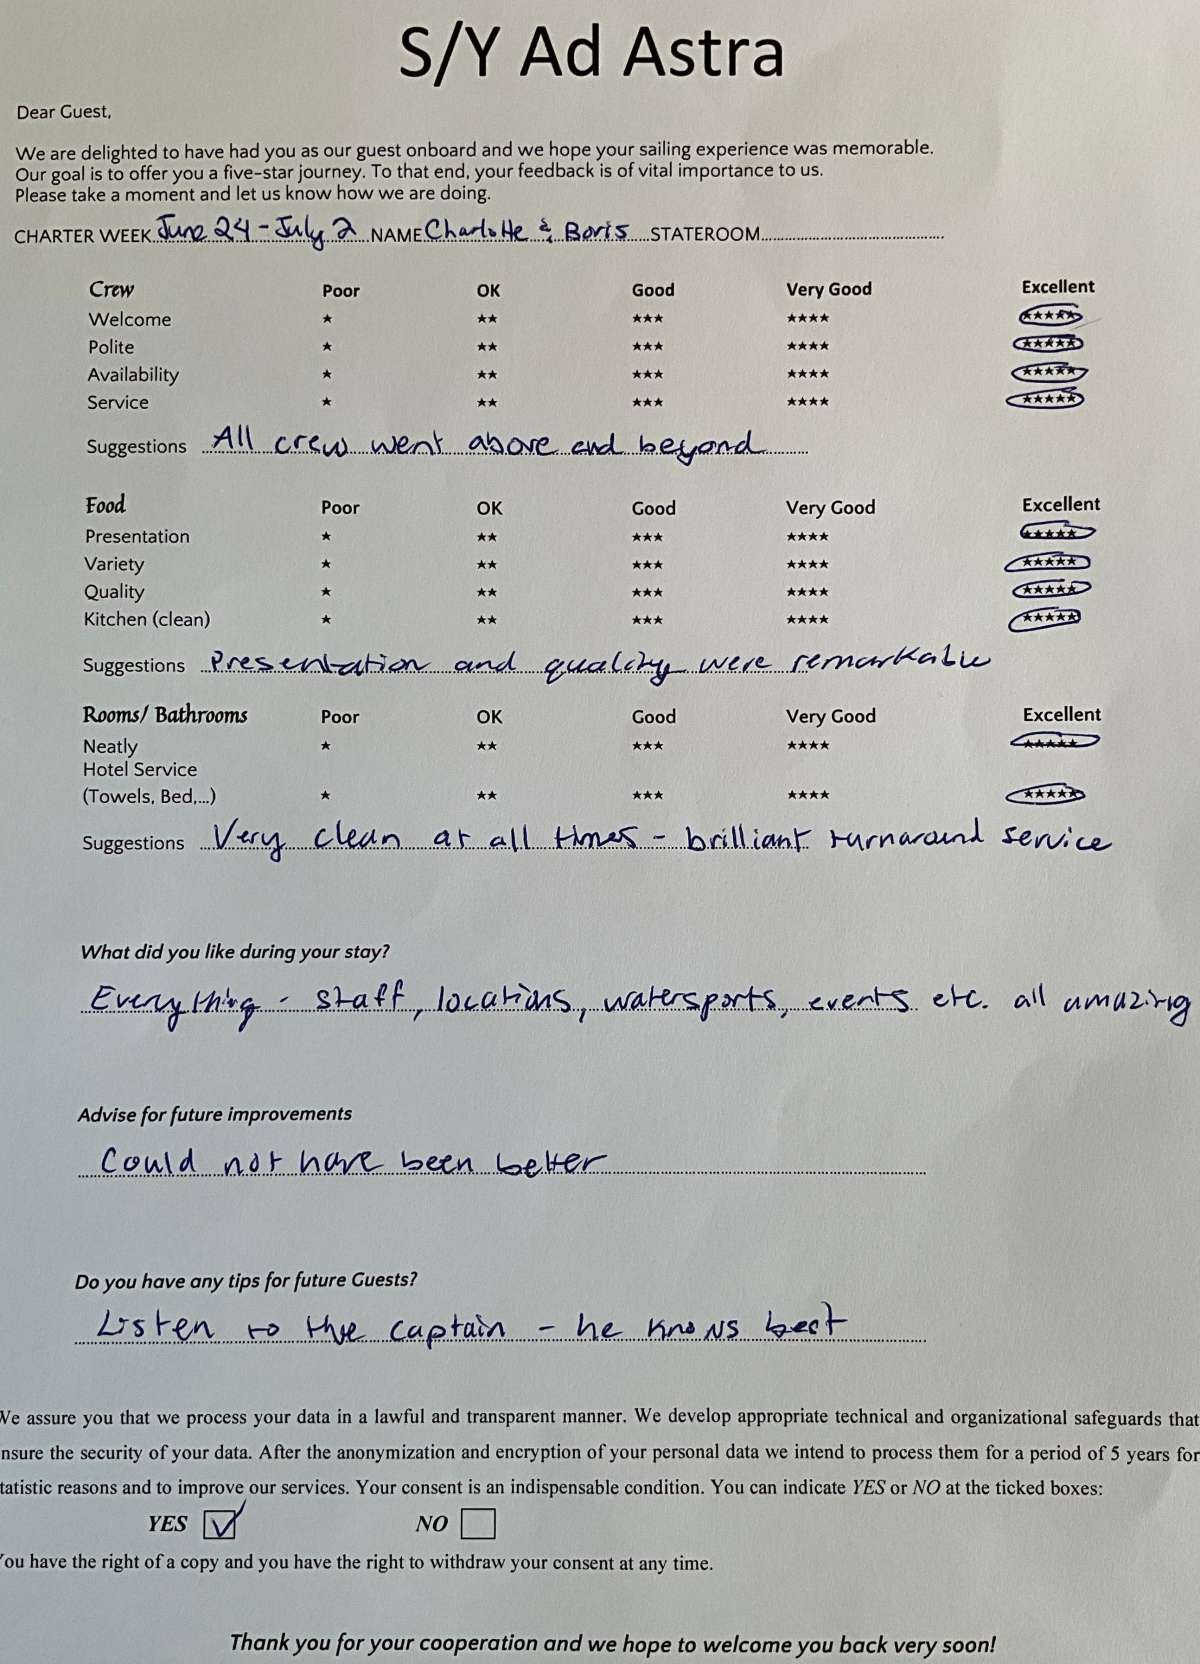 S/Y Ad Astra
Dear Guest,
We are delighted to have had you as our guest onboard and we hope your sailing experience was memorable.
Our goal is to offer you a five-star journey. To that end, your feedback is of vital importance to us.
Please take a moment and let us know how we are doing.
CHARTER WEEK June 24 - July 2 NAME Charlotte & Boris STATEROOM
Crew Poor OK Good Very Good Excellent
Welcome ★ ★★ ★★★ ★★★★ ★★★★★
Polite ★ ★★ ★★★ ★★★★ ★★★★★
Availability ★ ★★ ★★★ ★★★★ ★★★★★
Service ★ ★★ ★★★ ★★★★ ★★★★★
Suggestions All crew went above and beyond
Food Poor OK Good Very Good Excellent
Presentation ★ ★★ ★★★ ★★★★ ★★★★★
Variety ★ ★★ ★★★ ★★★★ ★★★★★
Quality ★ ★★ ★★★ ★★★★ ★★★★★
Kitchen (clean) ★ ★★ ★★★ ★★★★ ★★★★★
Suggestions Presentation and quality were remarkable
Rooms/ Bathrooms Poor OK Good Very Good Excellent
Neatly ★ ★★ ★★★ ★★★★ ★★★★★
Hotel Service
(Towels, Bed,...) ★ ★★ ★★★ ★★★★ ★★★★★
Suggestions Very clean at all times - brilliant turnaround service
What did you like during your stay?
Everything - staff, locations, watersports, events etc. all amazing
Advise for future improvements
Could not have been better
Do you have any tips for future Guests?
Listen to the captain - he knows best
We assure you that we process your data in a lawful and transparent manner. We develop appropriate technical and organizational safeguards that
nsure the security of your data. After the anonymization and encryption of your personal data we intend to process them for a period of 5 years for
tatistic reasons and to improve our services. Your consent is an indispensable condition. You can indicate YES or NO at the ticked boxes:
YES ✓ NO
You have the right of a copy and you have the right to withdraw your consent at any time.
Thank you for your cooperation and we hope to welcome you back very soon!